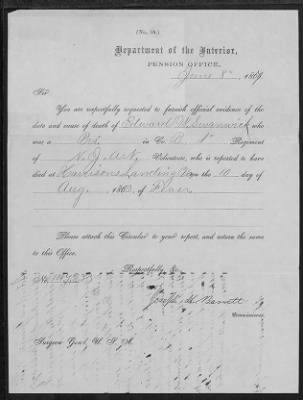 (No. 10.)
Department of the Interior,
PENSION OFFICE,
June 8", 1867
Sir:
You are respectfully requested to furnish official evidence of the
date and cause of death of Edward W. Swanwick who
was a Pvt. in Co. B 1" Regiment
of N. J. Art. Volunteers, who is reported to have
died at Harrisons Landing Va on the 10 day of
Aug. 1863, of
Please attach this Circular to your report, and return the same
to this Office.
Respectfully,
No.
Joseph H. Barrett
Commissioner.
Surgeon Genl, U. S. A.